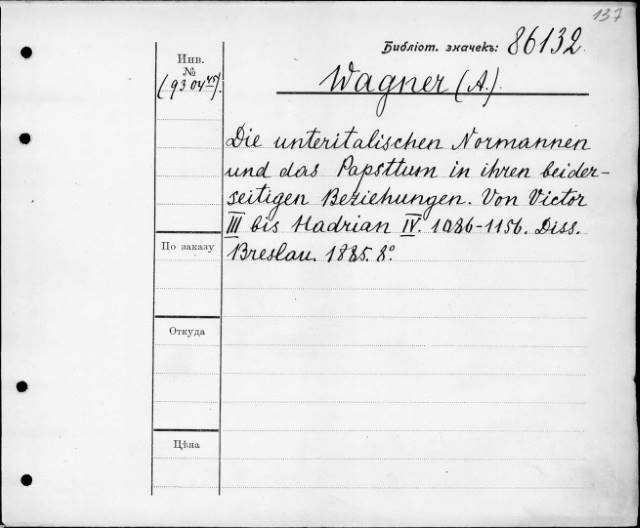 137
Библіот. значекъ: 86132.
Инв.
№
(9304 45).
Wagner (A.)
Die unteritalischen Normannen
und das Papsttum in ihren beider-
seitigen Beziehungen. Von Victor
III bis Hadrian IV. 1086-1156. Diss.
По заказу
Breslau. 1885. 8°
Откуда
Цѣна